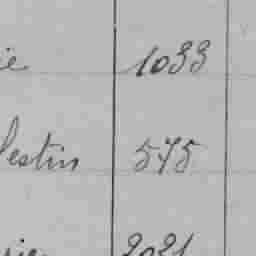 ie 1033
lestin 575
rie 2021